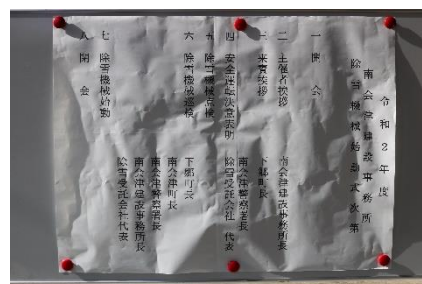 令和２年度
南会津建設事務所
除雪機械始動式次第
一 開　会
二 主催者挨拶　南会津建設事務所長
三 来賓挨拶　下郷町長
南会津警察署長
四 安全運転決意表明　除雪受託会社 代表
五 除雪機械点検
六 除雪機械巡検　下郷町長
南会津町長
南会津警察署長
南会津建設事務所長
除雪受託会社代表
七 除雪機械始動
八 閉　会